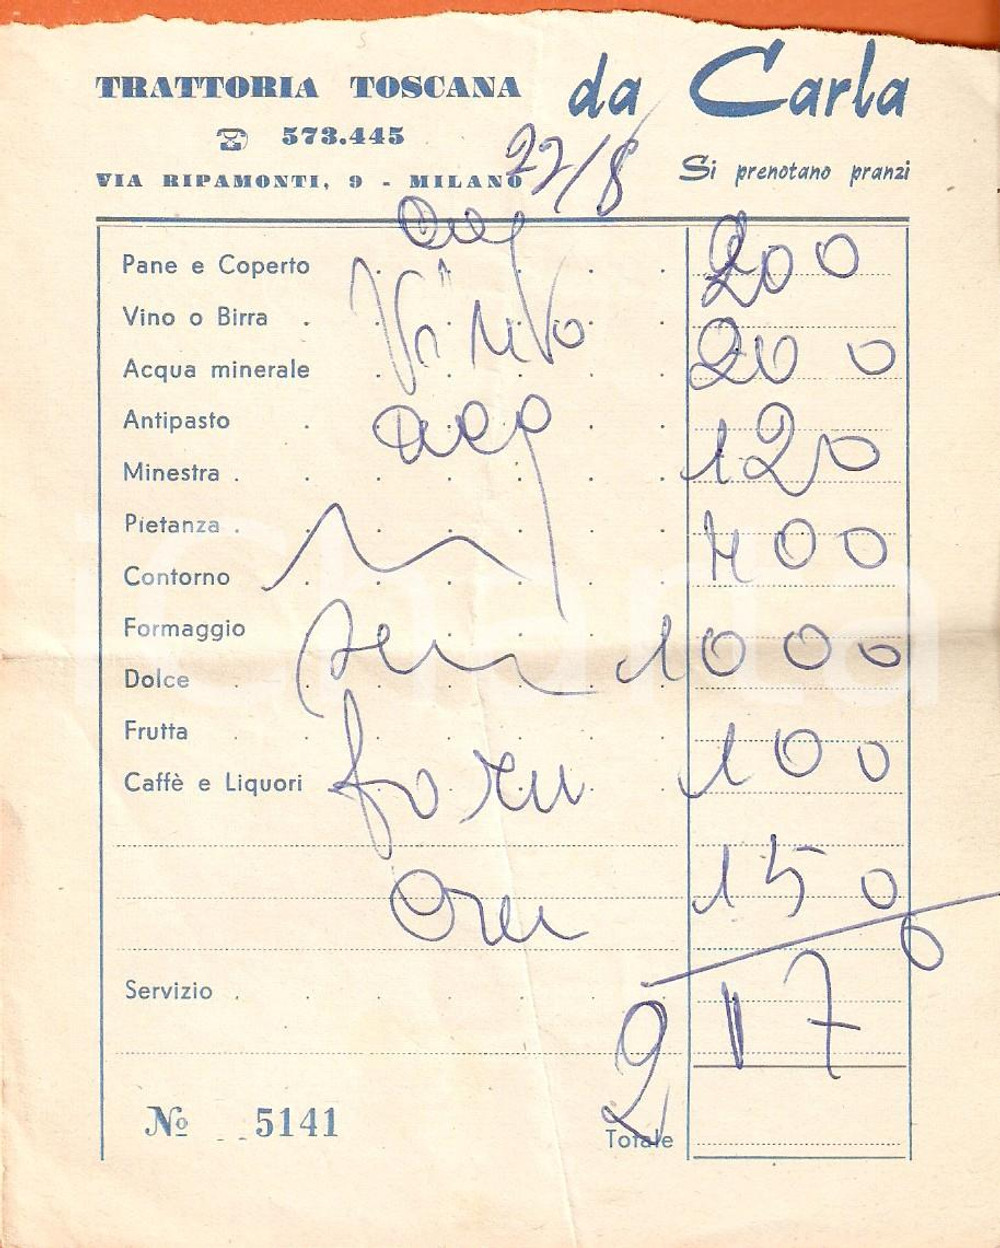 TRATTORIA TOSCANA da Carla
573.445
27/8
VIA RIPAMONTI, 9 - MILANO
Si prenotano pranzi
Pane e Coperto 200
Vino o Birra Vino
Acqua minerale 200
Antipasto
Minestra 120
Pietanza
Contorno 400
Formaggio
Dolce 1000
Frutta
Caffè e Liquori 100
150
Servizio
2170
Nº 5141
Totale